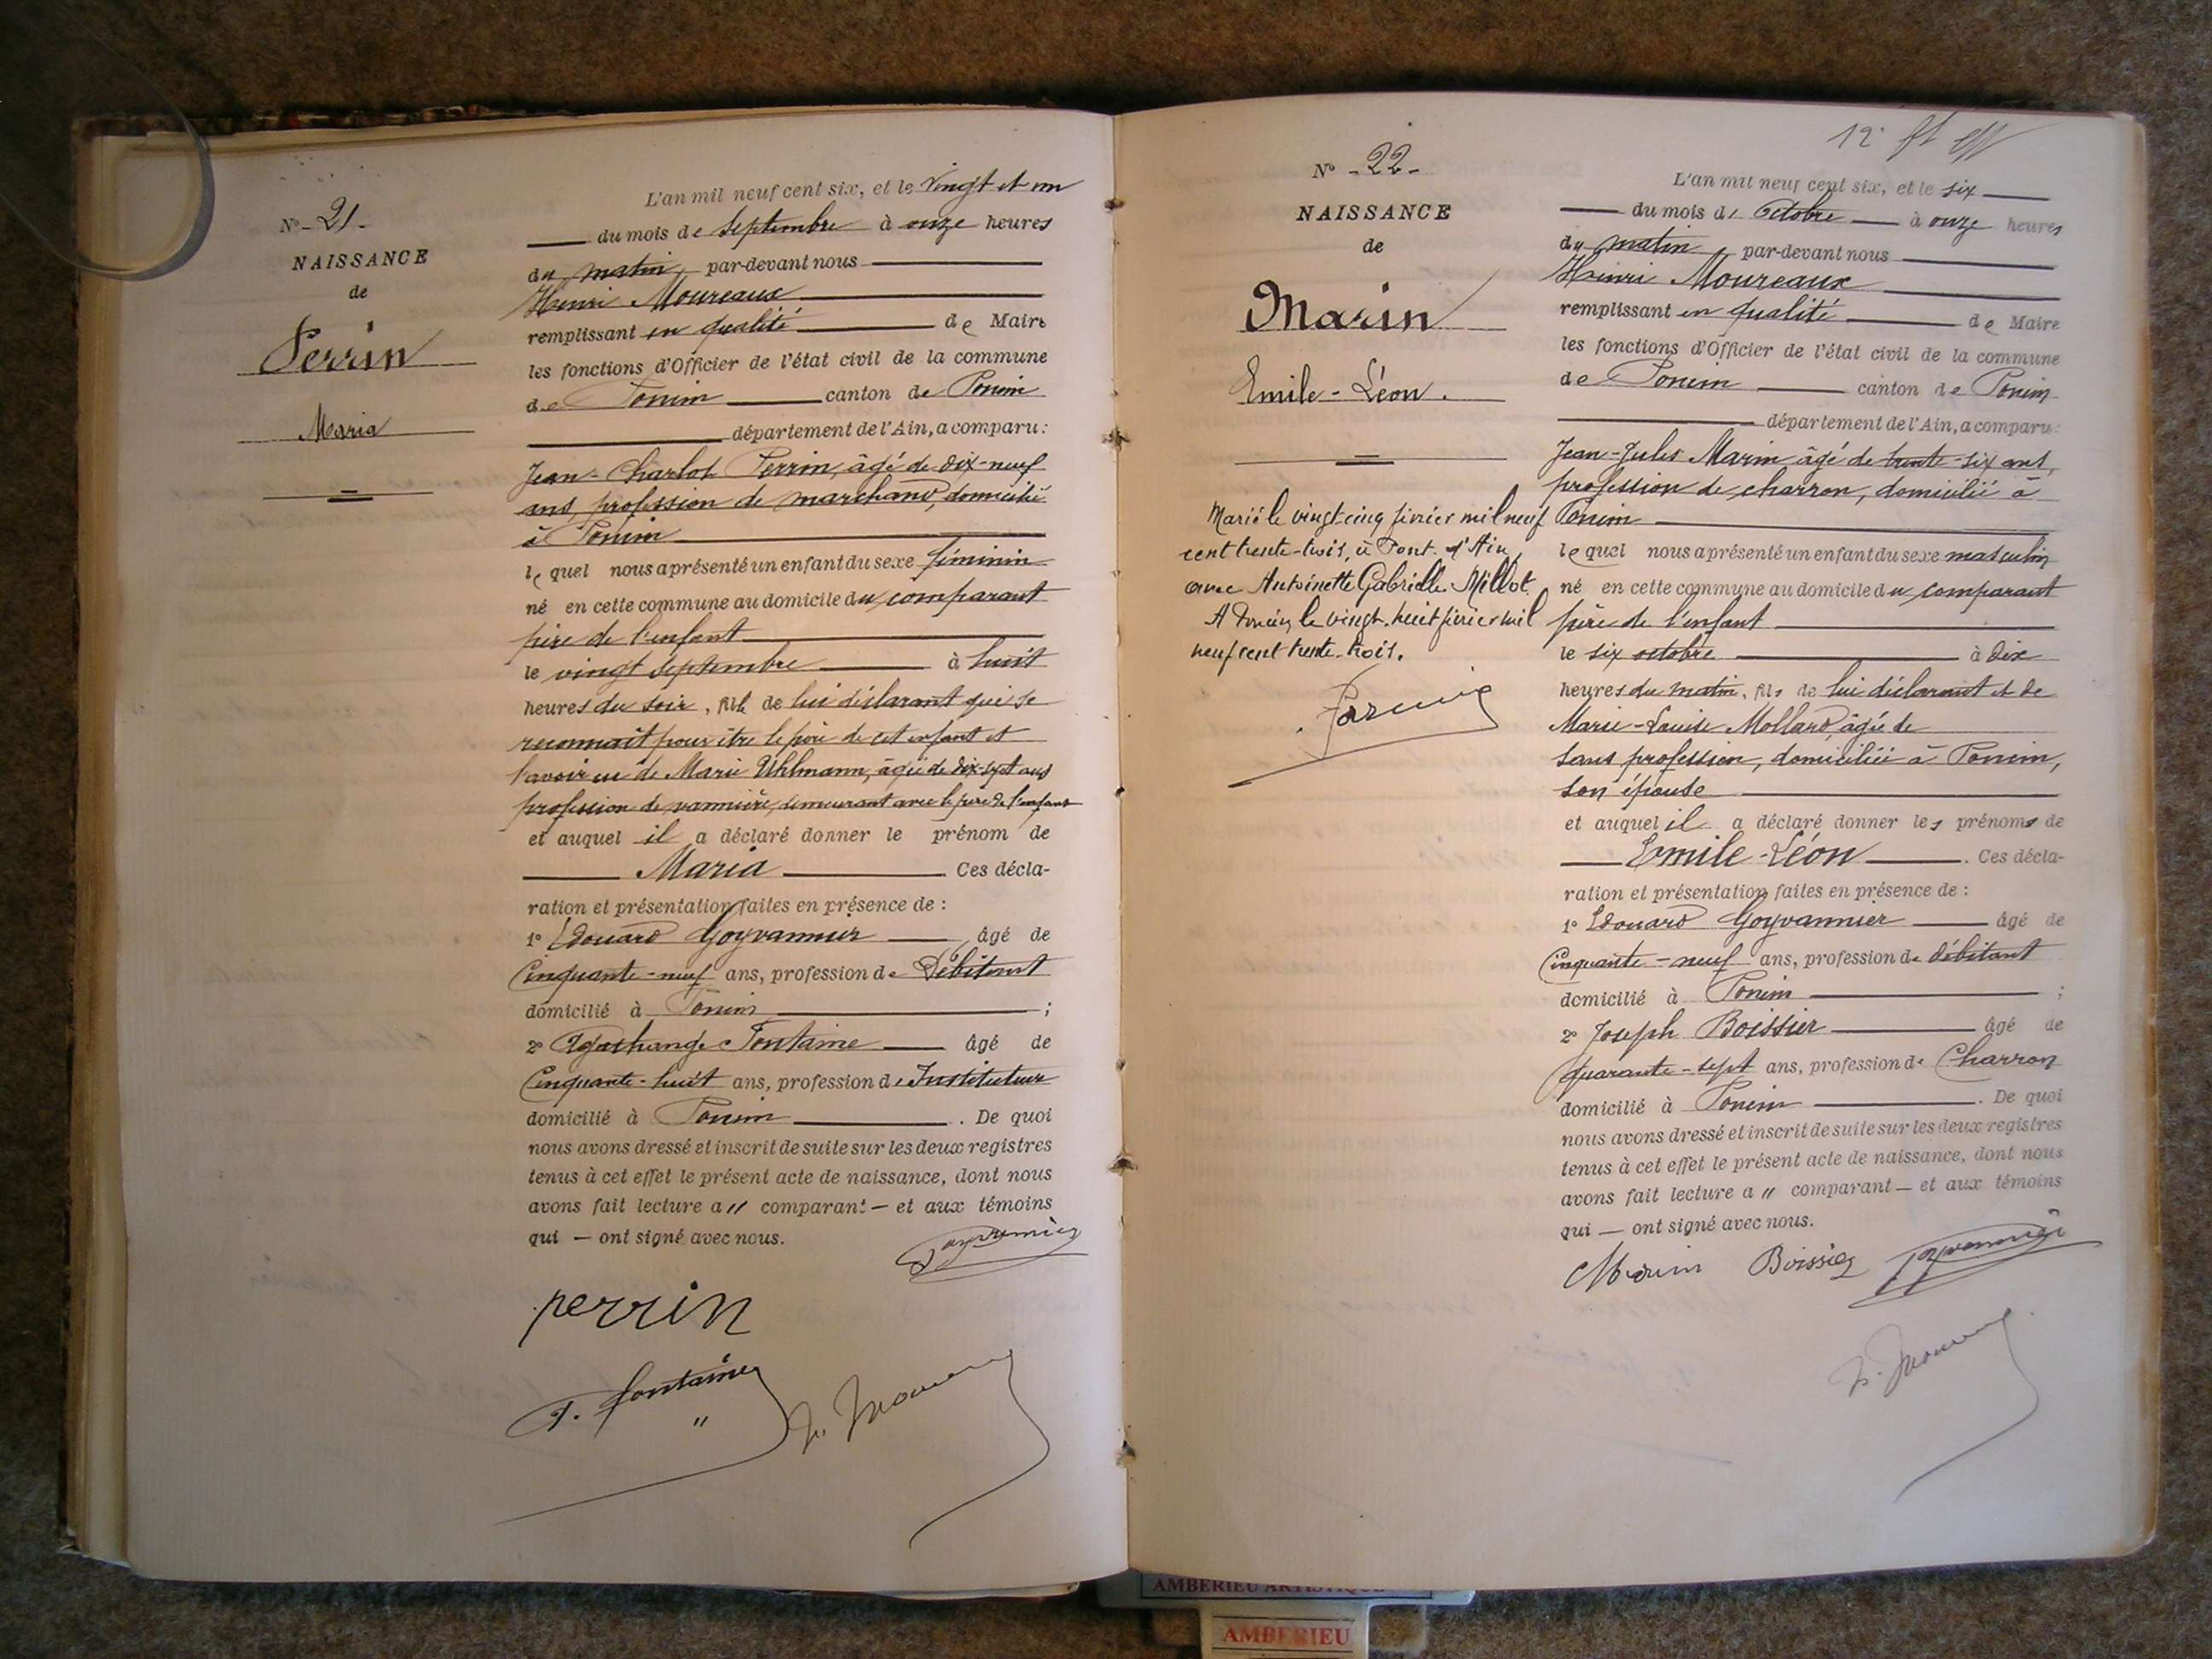 Nº 21.
NAISSANCE
de
Perrin
Maria
L'an mil neuf cent six, et le vingt et un
du mois de Septembre à onze heures
du matin, par-devant nous
Henri Moureaux
remplissant en qualité de Maire
les fonctions d'Officier de l'état civil de la commune
de Poncin canton de Poncin
département de l'Ain, a comparu :
Jean-Charlot Perrin, âgé de dix-neuf
ans, profession de marchand, domicilié
à Poncin
lequel nous a présenté un enfant du sexe féminin
né en cette commune au domicile du comparant
père de l'enfant
le vingt septembre à huit
heures du soir, fille de lui déclarant qui se
reconnaît pour être le père de cet enfant et
l'avoir eu de Marie Uhlmann, âgée de dix-sept ans
profession de vannière, demeurant avec le père de l'enfant
et auquel il a déclaré donner le prénom de
Maria. Ces décla-
ration et présentation faites en présence de :
1º Edouard Goyvannier âgé de
Cinquante-neuf ans, profession de Débitant
domicilié à Poncin ;
2º Fontaine âgé de
Cinquante-huit ans, profession de Instituteur
domicilié à Poncin. De quoi
nous avons dressé et inscrit de suite sur les deux registres
tenus à cet effet le présent acte de naissance, dont nous
avons fait lecture a" comparant — et aux témoins
qui — ont signé avec nous.
Goyvannier
perrin
F. fontaine
Nº 22.
NAISSANCE
de
Marin
Emile-Léon.
Marié le vingt-cinq février mil neuf
cent trente-trois, à Pont-d'Ain,
avec Antoinette Gabrielle Millot.
A Poncin, le vingt-huit février mil
neuf cent trente-trois.
12
L'an mil neuf cent six, et le six
du mois de Octobre à onze heures
du matin, par-devant nous
Henri Moureaux
remplissant en qualité de Maire
les fonctions d'Officier de l'état civil de la commune
de Poncin canton de Poncin
département de l'Ain, a comparu :
Jean-Jules Marin âgé de trente-six ans,
profession de charron, domicilié à
Poncin
lequel nous a présenté un enfant du sexe masculin
né en cette commune au domicile du comparant
père de l'enfant
le six octobre à dix
heures du matin, fils de lui déclarant et de
Marie-Louise Mollard, âgée de
sans profession, domiciliée à Poncin,
son épouse
et auquel il a déclaré donner les prénoms de
Emile-Léon. Ces décla-
ration et présentation faites en présence de :
1º Edouard Goyvannier âgé de
Cinquante-neuf ans, profession de débitant
domicilié à Poncin ;
2º Joseph Boissier âgé de
quarante-sept ans, profession de Charron
domicilié à Poncin. De quoi
nous avons dressé et inscrit de suite sur les deux registres
tenus à cet effet le présent acte de naissance, dont nous
avons fait lecture a" comparant — et aux témoins
qui — ont signé avec nous.
Marin Boissier Goyvannier
AMBERIEU ARTISTIQUE
AMBERIEU